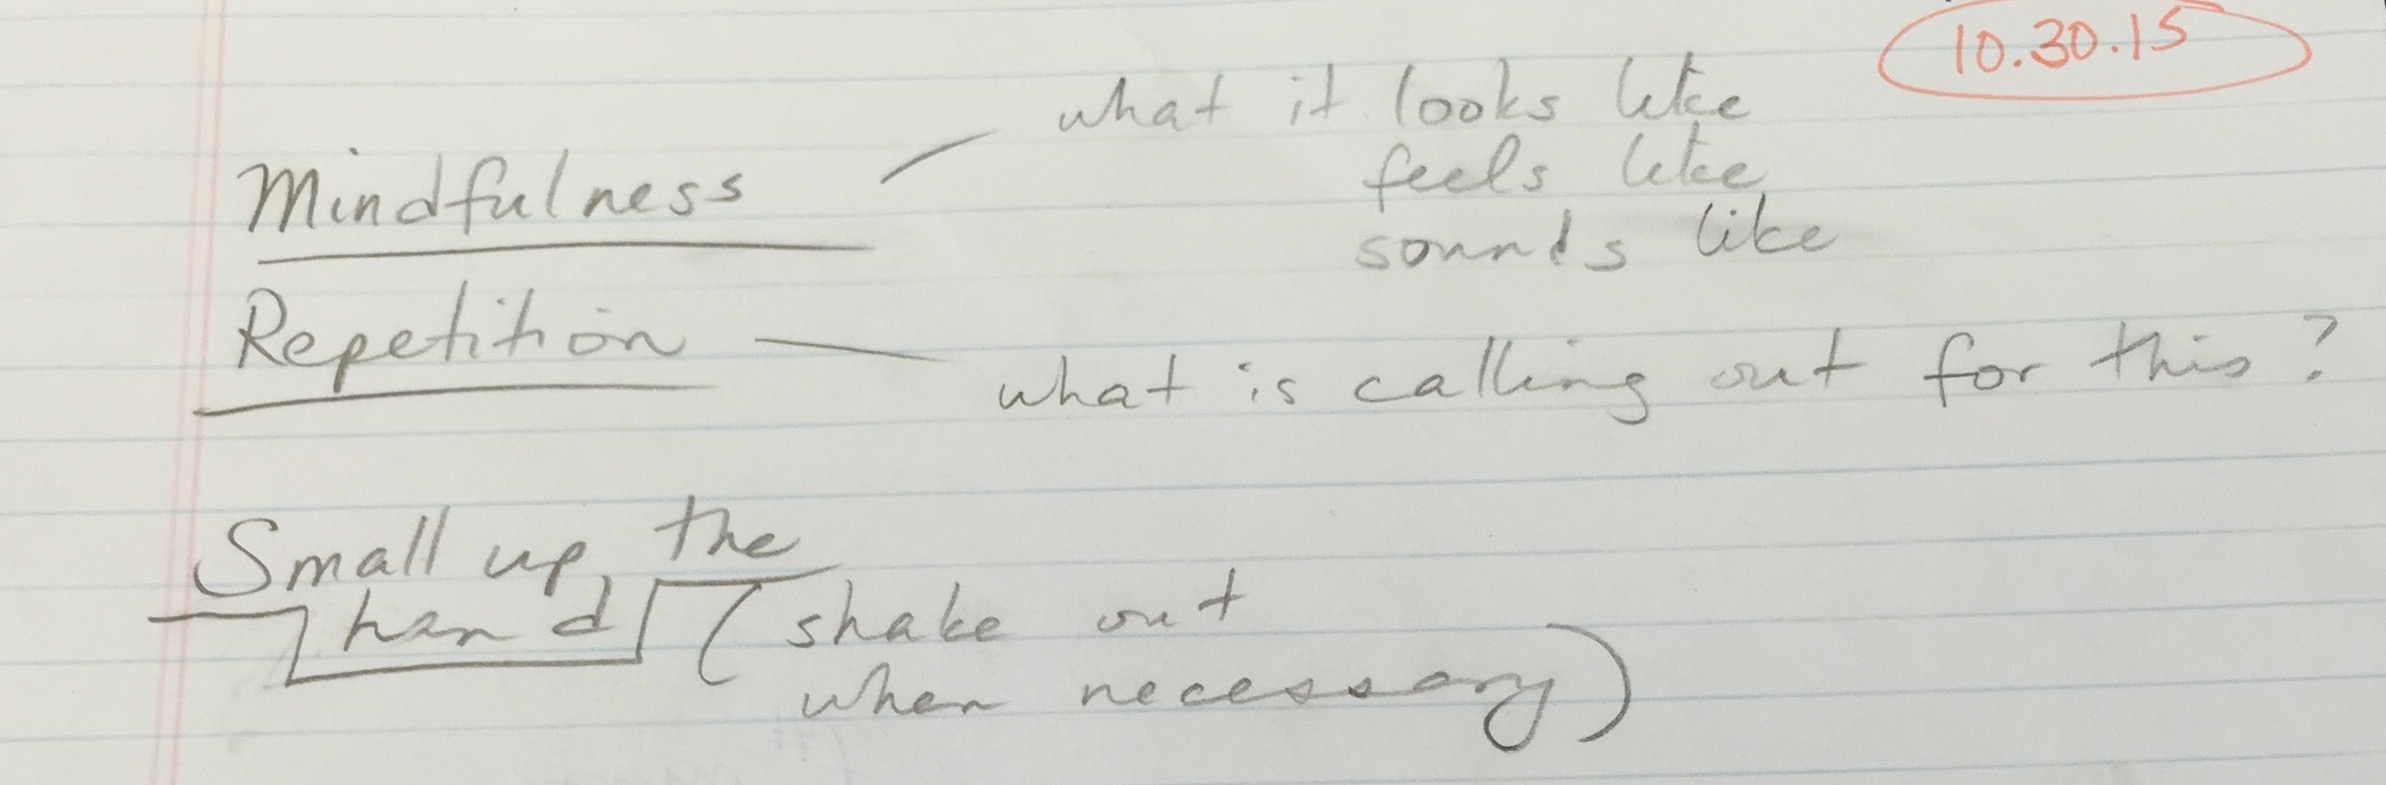 10.30.15
what it looks like
Mindfulness — feels like
sounds like
Repetition — what is calling out for this?
Small up the
hand (shake out
when necessary)